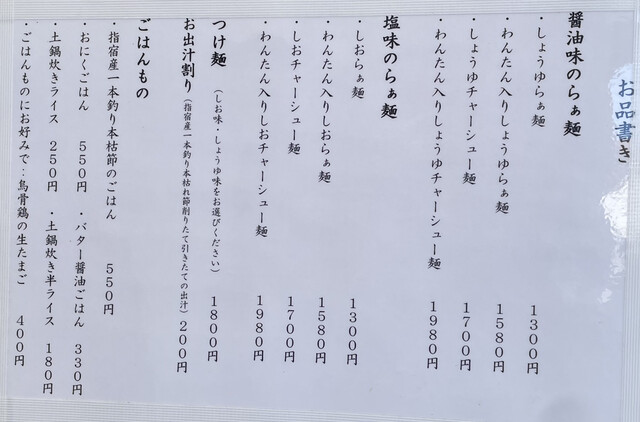 お品書き
醤油味のらぁ麺
・しょうゆらぁ麺 1300円
・わんたん入りしょうゆらぁ麺 1580円
・しょうゆチャーシュー麺 1700円
・わんたん入りしょうゆチャーシュー麺 1980円
塩味のらぁ麺
・しおらぁ麺 1300円
・わんたん入りしおらぁ麺 1580円
・しおチャーシュー麺 1700円
・わんたん入りしおチャーシュー麺 1980円
つけ麺 (しお味・しょうゆ味をお選びください) 1800円
お出汁割り(指宿産一本釣り本枯れ節削りたて引きたての出汁) 200円
ごはんもの
・指宿産一本釣り本枯節のごはん 550円
・おにくごはん 550円 ・バター醤油ごはん 330円
・土鍋炊きライス 250円 ・土鍋炊き半ライス 180円
・ごはんものにお好みで：烏骨鶏の生たまご 400円